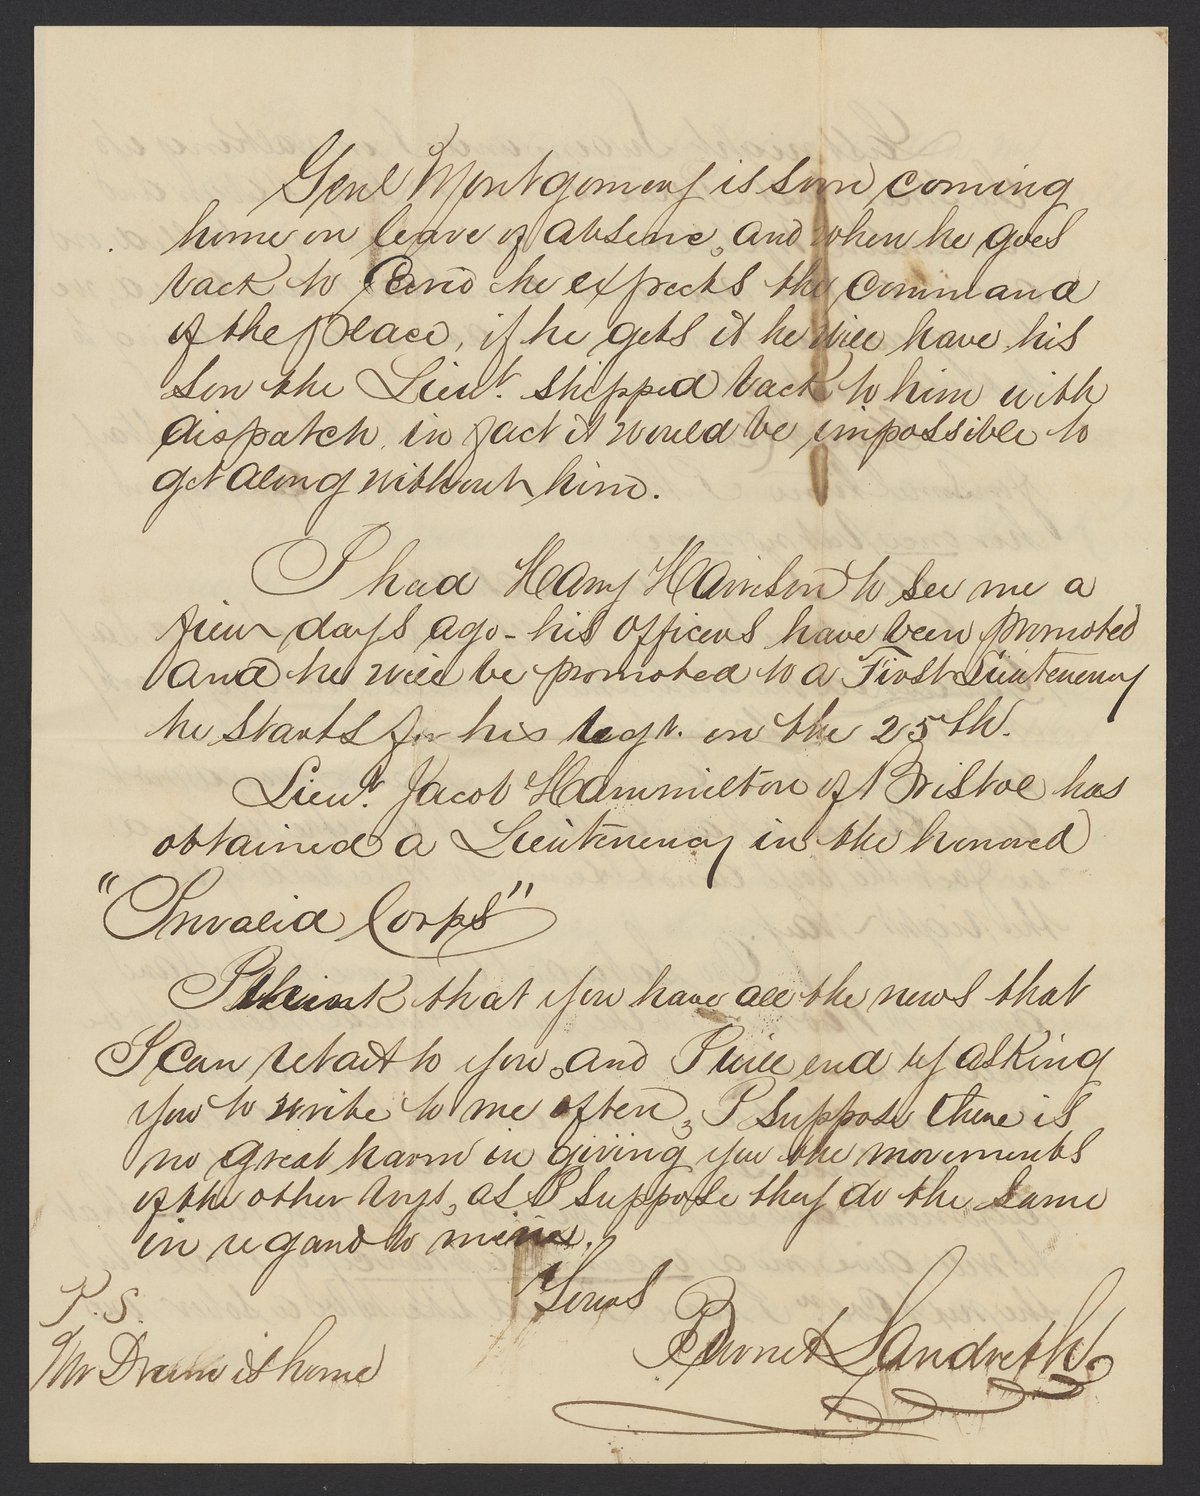 Genl Montgomery is soon coming
home on leave of absence, and when he goes
back to Camp he expects the command
of the place, if he gets it he will have his
son the Lieut. shipped back to him with
dispatch, in fact it would be impossible to
get along without him.
I had Harry Harrison to see me a
few days ago - his officers have been promoted
and he will be promoted to a First Lieutenency
he starts for his regt. on the 25th.
Lieut. Jacob Hammilton of Bristol has
obtained a Lieutenency in the honored
"Invalid Corps"
I think that you have all the news that
I can retail to you, and I will end by asking
you to write to me often, I suppose there is
no great harm in giving you the movements
of the other boys, as I suppose they do the same
in regard to mine.
Yours
Burnet Landreth
P.S.
Mr Drum is home